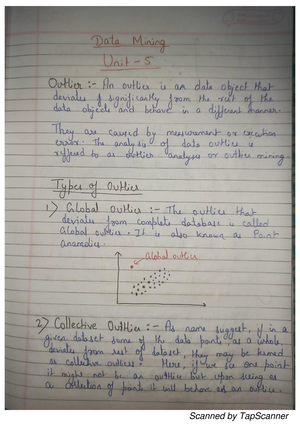 Data Mining
Unit - 5
Outlier :- An outlier is an data object that
deviates significantly from the rest of the
data objects and behave in a different manner.
They are caused by measurement or execution
error. The analysis of data outlier is
reffered to as outlier analysis or outlier mining.
Types of Outlier
1) Global Outlier :- The outlier that
deviates from complete database is called
Global outlier. It is also known as Point
anamolies.
Global outlier
2) Collective Outlier :- As name suggest, if in a
given dataset some of the data points, as a whole
deviates from rest of dataset, they may be termed
as collective outlier. Here, if we see one point
it might not be an outlier but upon seeing as
a collection of point it will behave as an outlier.
Scanned by TapScanner